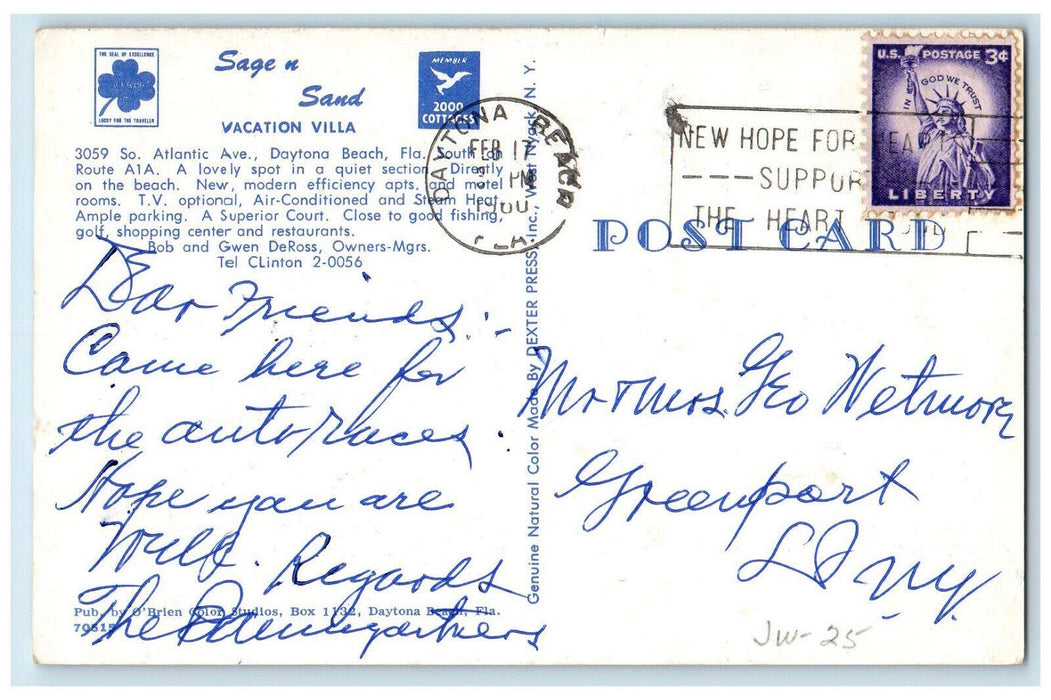 THE SEAL OF EXCELLENCE
LUCKY FOR THE TRAVELER
Sage n
Sand
VACATION VILLA
MEMBER
2000
COTTAGES
3059 So. Atlantic Ave., Daytona Beach, Fla. South on
Route A1A. A lovely spot in a quiet section. Directly
on the beach. New, modern efficiency apts. and motel
rooms. T.V. optional, Air-Conditioned and Steam Heat.
Ample parking. A Superior Court. Close to good fishing,
golf, shopping center and restaurants.
Bob and Gwen DeRoss, Owners-Mgrs.
Tel CLinton 2-0056
Dear Friends:-
Came here for
the auto races.
Hope you are
well. Regards
The Baumgartners
Pub. by O'Brien Color Studios, Box 1132, Daytona Beach, Fla.
70615
Genuine Natural Color Made By DEXTER PRESS, Inc., West Nyack, N. Y.
DAYTONA BEACH
FEB 17
PM
FLA.
NEW HOPE FOR HEART
SUPPOR
THE HEART FUND
U.S. POSTAGE 3¢
IN GOD WE TRUST
LIBERTY
POST CARD
Mr & Mrs. Geo Wetmore
Greenport
L I NY
JW-25